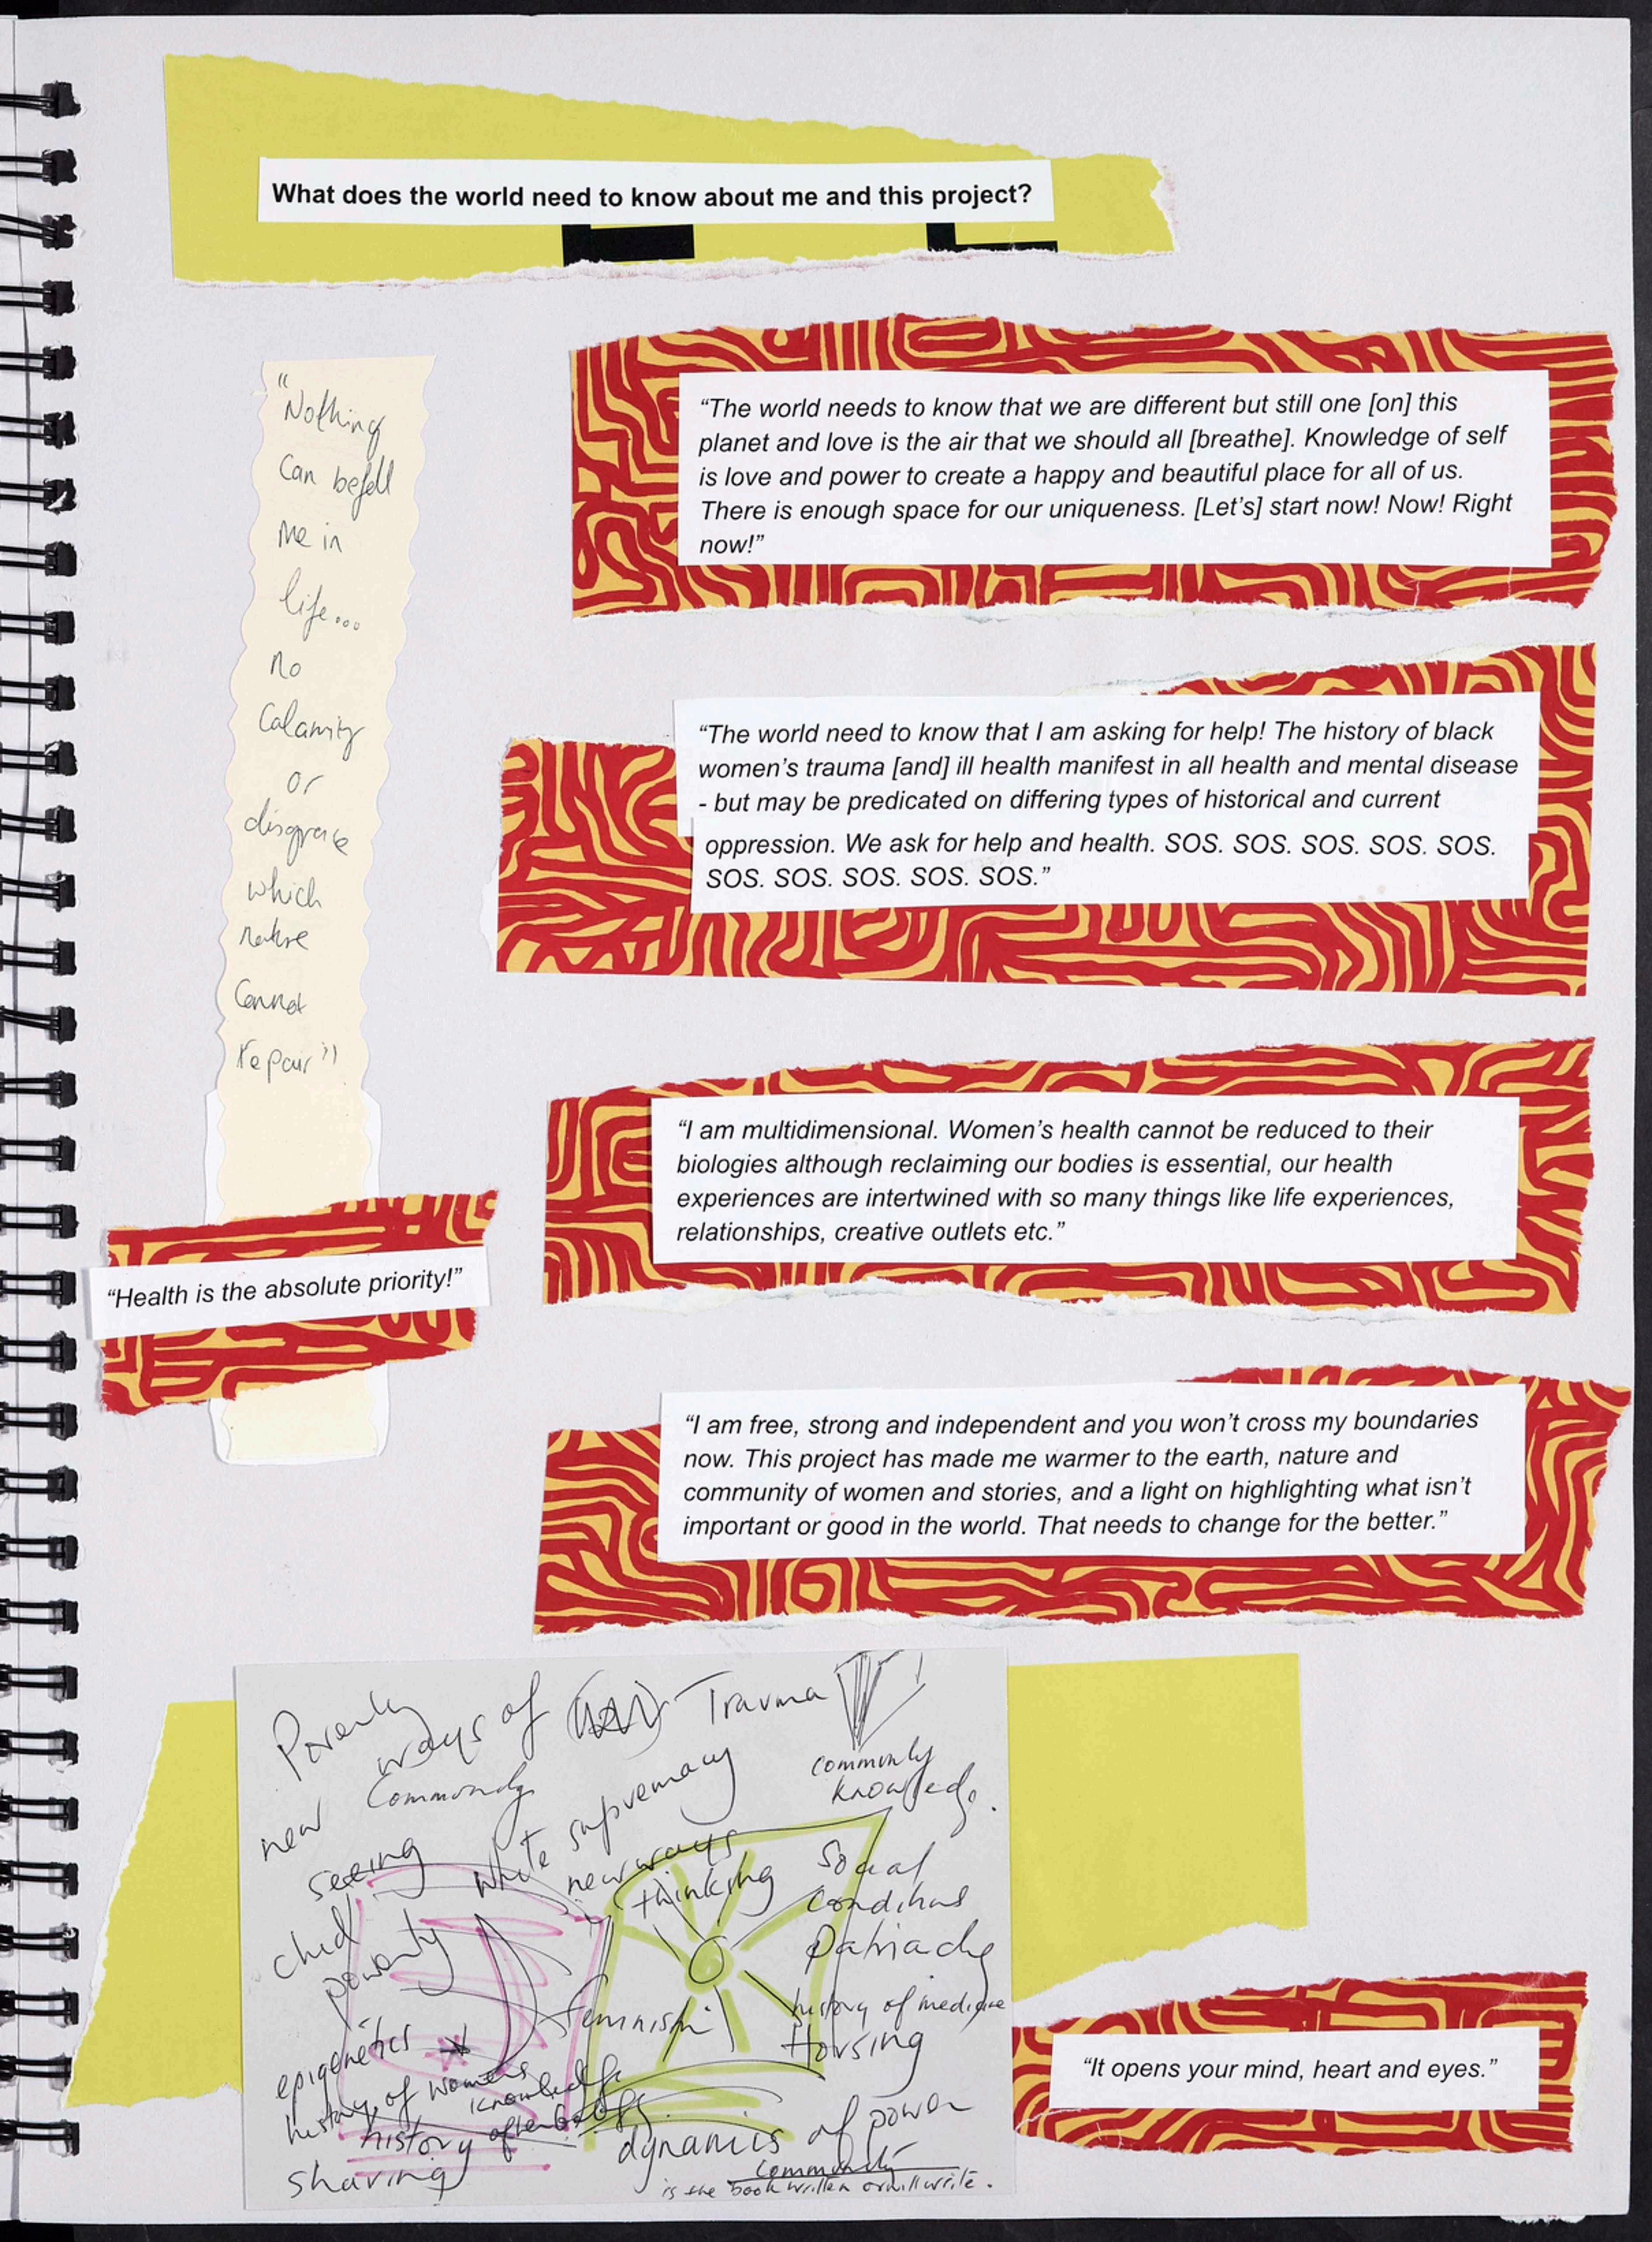 What does the world need to know about me and this project?
"Nothing
Can befall
me in
life...
no
Calamity
or
disgrace
which
nature
Cannot
repair"
“The world needs to know that we are different but still one [on] this
planet and love is the air that we should all [breathe]. Knowledge of self
is love and power to create a happy and beautiful place for all of us.
There is enough space for our uniqueness. [Let’s] start now! Now! Right
now!”
“The world need to know that I am asking for help! The history of black
women’s trauma [and] ill health manifest in all health and mental disease
- but may be predicated on differing types of historical and current
oppression. We ask for help and health. SOS. SOS. SOS. SOS. SOS.
SOS. SOS. SOS. SOS. SOS.”
“I am multidimensional. Women’s health cannot be reduced to their
biologies although reclaiming our bodies is essential, our health
experiences are intertwined with so many things like life experiences,
relationships, creative outlets etc.”
“Health is the absolute priority!”
“I am free, strong and independent and you won’t cross my boundaries
now. This project has made me warmer to the earth, nature and
community of women and stories, and a light on highlighting what isn’t
important or good in the world. That needs to change for the better.”
ways of
Trauma
new
white supremacy
knowledge.
seeing
new ways
thinking
Social
poverty
feminism
history of medicine
Housing
epigenetics
history of womens
knowledge
history
sharing
dynamics of power
community
is the book written
“It opens your mind, heart and eyes.”